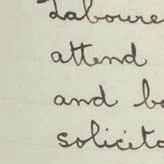 Laboure
attend
and b
solicito